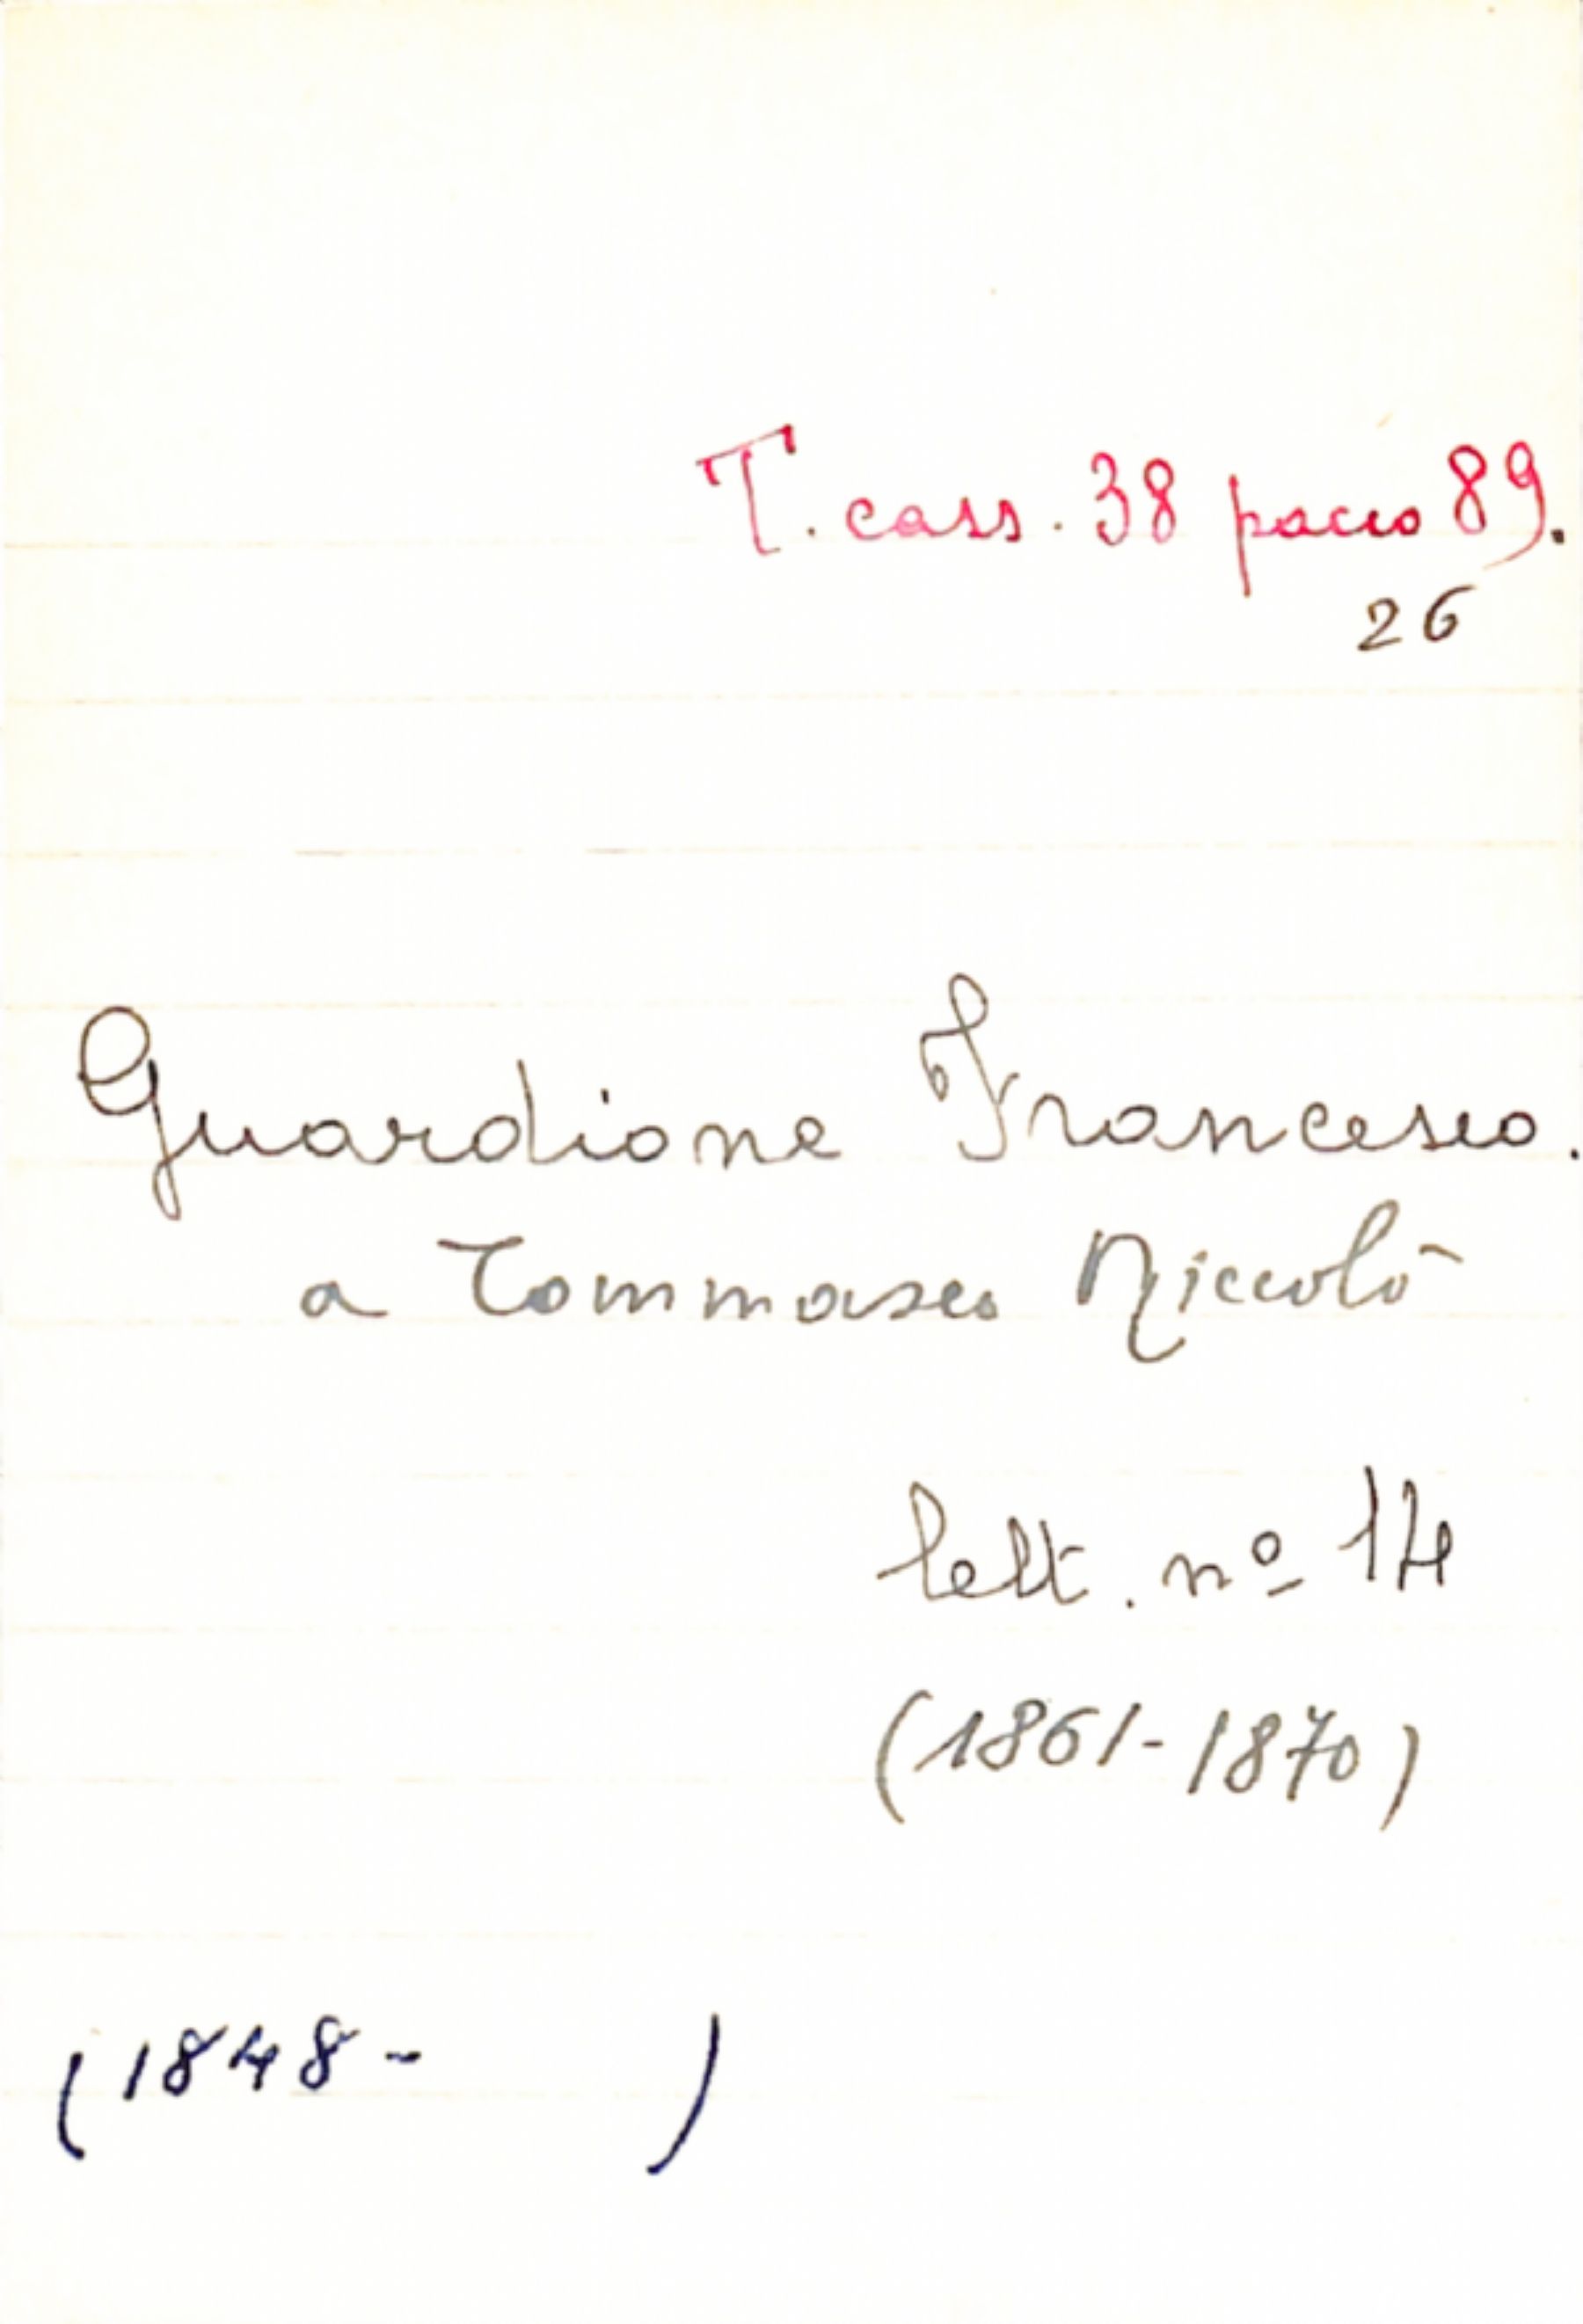 T. cass. 38 pacco 89.
26
Guardione Francesco.
a Tommaseo Niccolò
lett. nº 14
(1861-1870)
(1848-     )